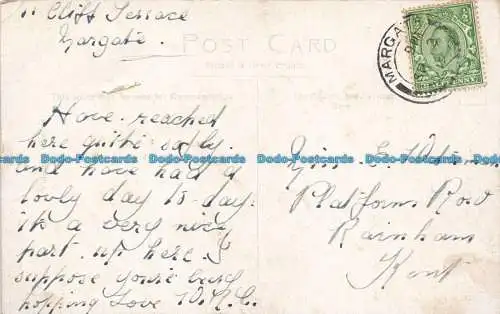 11 Cliff Terrace
Margate.
POST CARD
MARGATE
Have reached
here quite safly.
and have had a
lovly day to-day.
its a very nice
part up here. I
suppose you're busy
hopping Love W.M.C.
Miss E.
Platforms Row
Rainham
Kent
Dodo-Postcards Dodo-Postcards Dodo-Postcards Dodo-Postcards Dodo-Postcards